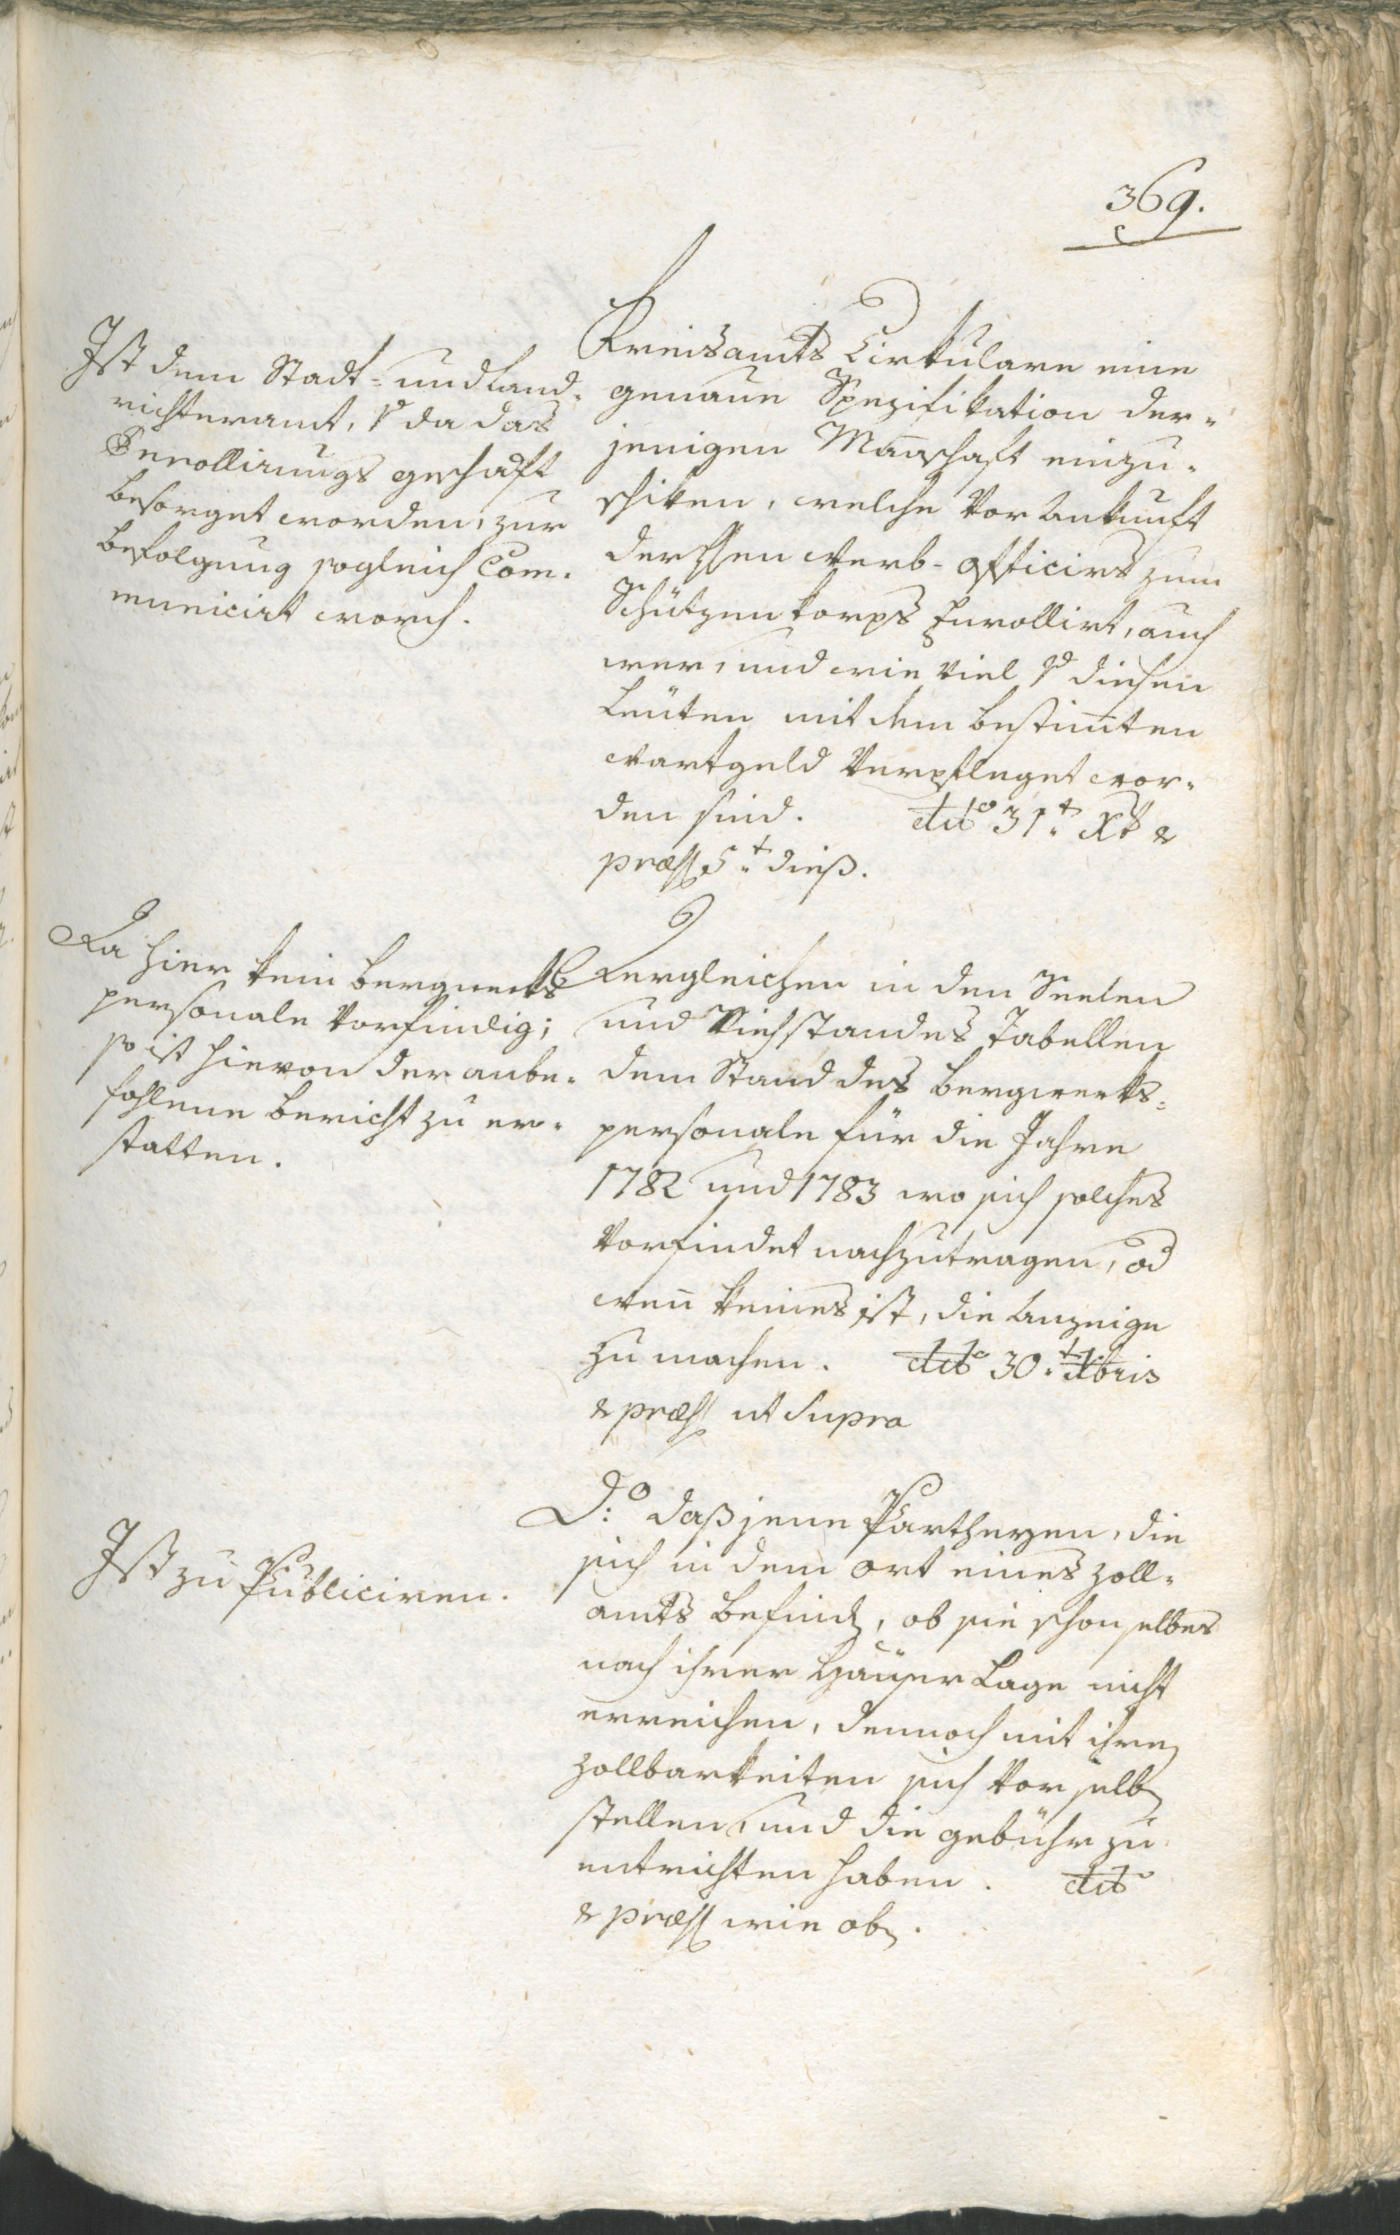 369.
Ist dem Stadt- und Land-
richteramt, so da das
Enrollirungs geschäft
besorget worden, zur
befolgung sogleich Com-
municirt word.
Kreisamts Cirkulare eine
genaue Spezifikation der-
jenigen Manschaft einzu-
schiken, welche vor Ankunft
der Werb-Officirs zum
Schützenkorps Enrollirt, auch
wer, und wie viel diesen
Leuten mit dem bestimten
Wartgeld verpfleget wor-
den sind. dto 31t Xb &
præs 5t dieß.
Da hier kein bergwerks
personale vorfindig;
so ist hievon der anbe-
fohlene bericht zu er-
statten.
Dergleichen in den Seelen
und Viehstandes Tabellen
dem Stand des bergwerks-
personale für die Jahre
1782 und 1783 wo sich solches
vorfindet nachzutragen, od
wen keines ist, die Anzeige
zu machen. dto 30t Xbris
& præs ut Supra
Ist zu Publiciren.
Do: daß jene Partheyen, die
sich in dem Ort eines Zoll-
amts befind, ob sie schon selbes
nach ihrer Häuser Lage nicht
erreichen, dennoch mit ihren
Zollbarkeiten sich vor selben
stellen, und die gebühr zu
entrichten haben. dto
& præs wie oben.